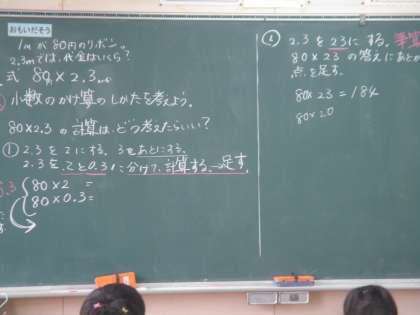 おもいだそう
1mが80円のリボン。
2.3mでは、代金はいくら?
式 80×2.3
小数のかけ算のしかたを考えよう。
80×2.3の計算は、どう考えたらいい?
① 2.3を2にする。3をあとにする。
2.3を、2と0.3に分けて、計算する。→足す。
80×2 =
80×0.3=
② 2.3を23にする。筆算
80×23の答えにあとか
点を足す。
80×23=184
80×20